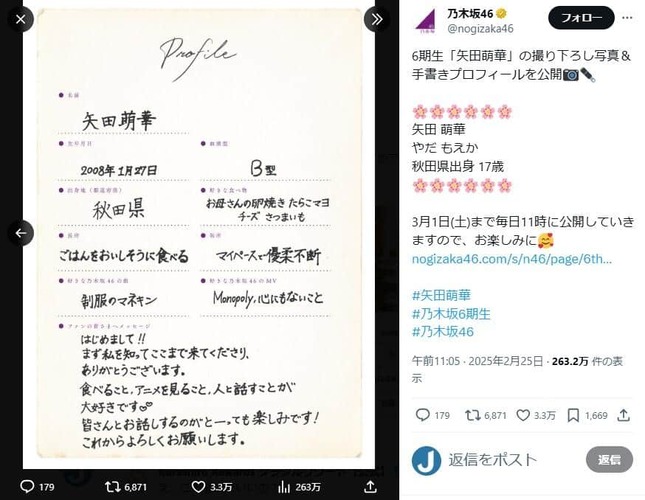 Profile
名前
矢田萌華
生年月日
2008年1月27日
血液型
B型
出身地（都道府県）
秋田県
好きな食べ物
お母さんの卵焼き たらこマヨ
チーズ さつまいも
長所
ごはんをおいしそうに食べる
短所
マイペースで優柔不断
好きな乃木坂46の曲
制服のマネキン
好きな乃木坂46のMV
Monopoly,心にもないこと
ファンの皆さまへメッセージ
はじめまして!!
まず私を知ってここまで来てくださり、
ありがとうございます。
食べること,アニメを見ること,人と話すことが
大好きです♡
皆さんとお話しするのがとーっても楽しみです!
これからよろしくお願いします。
179
6,871
3.3万
263万
乃木坂46
@nogizaka46
フォロー
6期生「矢田萌華」の撮り下ろし写真＆
手書きプロフィールを公開📷🎤
🌸🌸🌸🌸🌸🌸
矢田 萌華
やだ もえか
秋田県出身 17歳
🌸🌸🌸🌸🌸🌸
3月1日(土)まで毎日11時に公開していき
ますので、お楽しみに🥰
nogizaka46.com/s/n46/page/6th…
#矢田萌華
#乃木坂6期生
#乃木坂46
午前11:05 · 2025年2月25日 · 263.2万 件の表
示
179
6,871
3.3万
1,669
J
返信をポスト
返信